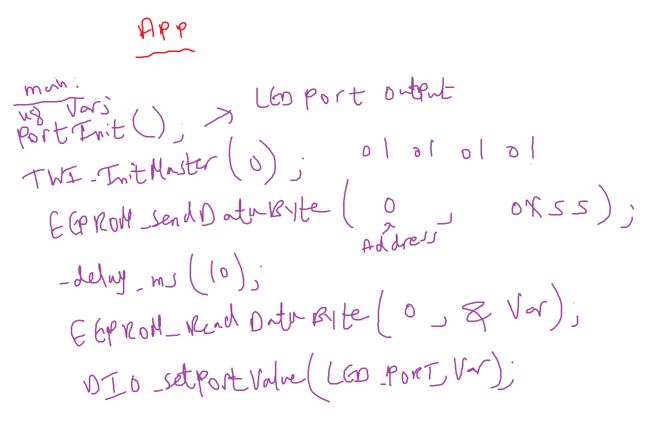 App
main:
u8 Var;
PortInit(); → LED Port output
TWI_InitMaster(0); 01 01 01 01
EEPROM_sendDataByte(0, 0X55);
Address
_delay_ms(10);
EEPROM_Read DataByte(0, & Var);
DIO_setPortValue(LED_PORT, Var);